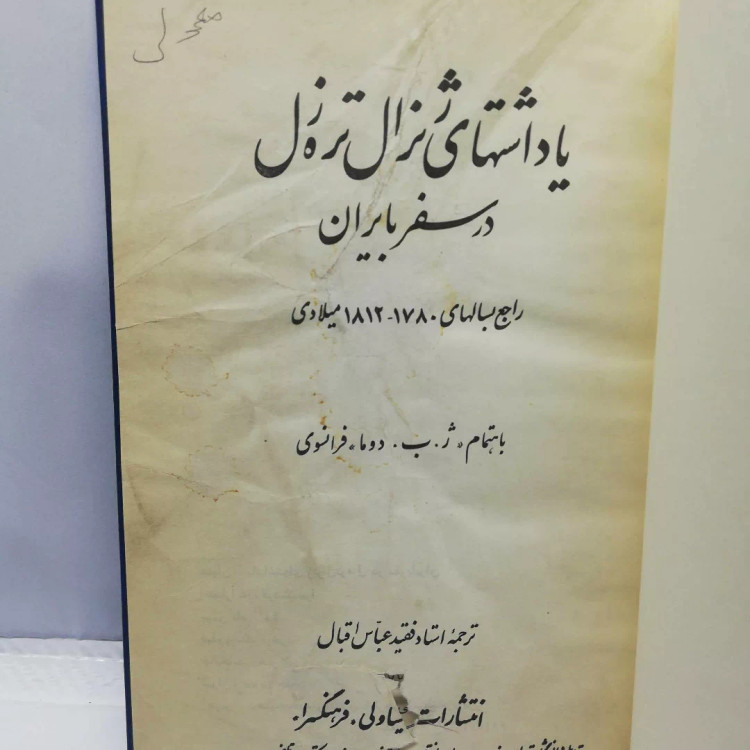 معمولی
یاداشتهای ژنرال تره زل
در سفر بایران
راجع بسالهای ۱۷۸۰-۱۸۱۲ میلادی
باهتمام . ژ . ب . دوما . فرانسوی
ترجمهٔ استاد فقید عباس اقبال
انتشارات یساولی . فرهنگسرا .